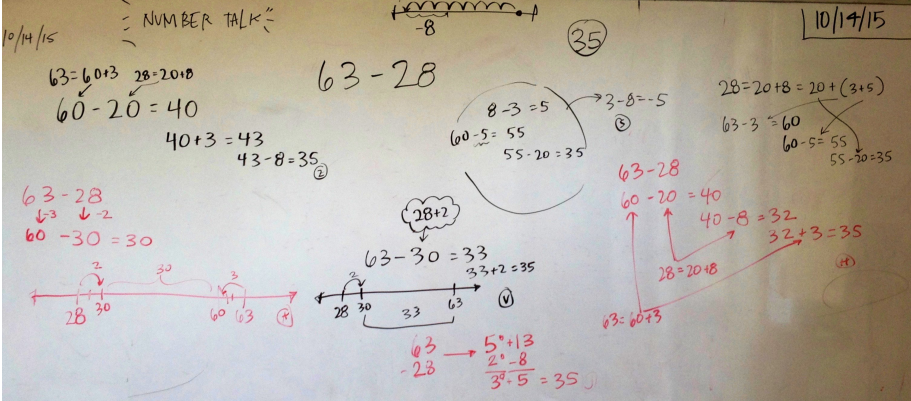 10/14/15
NUMBER TALK
-8
35
10/14/15
63 - 28
63 = 60+3 28 = 20+8
60 - 20 = 40
40 + 3 = 43
43 - 8 = 35
2
8 - 3 = 5
3 - 8 = -5
60 - 5 = 55
55 - 20 = 35
5
28 = 20+8 = 20 + (3+5)
63 - 3 = 60
60 - 5 = 55
55 - 20 = 35
63 - 28
-3 -2
60 - 30 = 30
2 30 3
28 30 60 63
28+2
63 - 30 = 33
33 + 2 = 35
2
28 30 63
33
V
63 - 28
60 - 20 = 40
40 - 8 = 32
32 + 3 = 35
28 = 20+8
63 = 60+3
63 5° + 13
-28 2° - 8
3° + 5 = 35